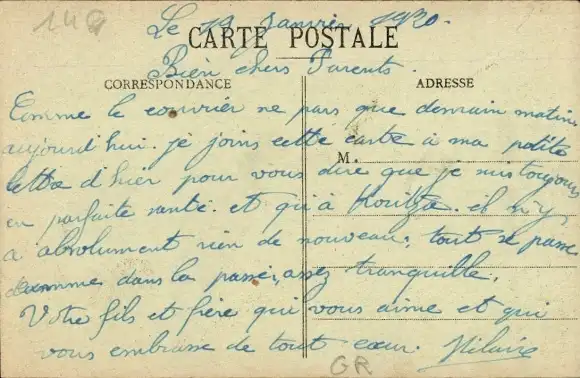 140
Le 19 Janvier 1920.
CARTE POSTALE
Bien chers Parents.
CORRESPONDANCE
ADRESSE
Comme le courrier ne pars que demain matin
aujourd'hui. je joins cette carte à ma petite
M.
lettre d'hier pour vous dire que je suis toujours
en parfaite santé. et qu'à Koritza. il n'y
a absolument rien de nouveau; tout se passe
comme dans la passé, assez tranquille.
Votre fils et frère qui vous aime et qui
vous embrasse de tout cœur. Hilaire
GR